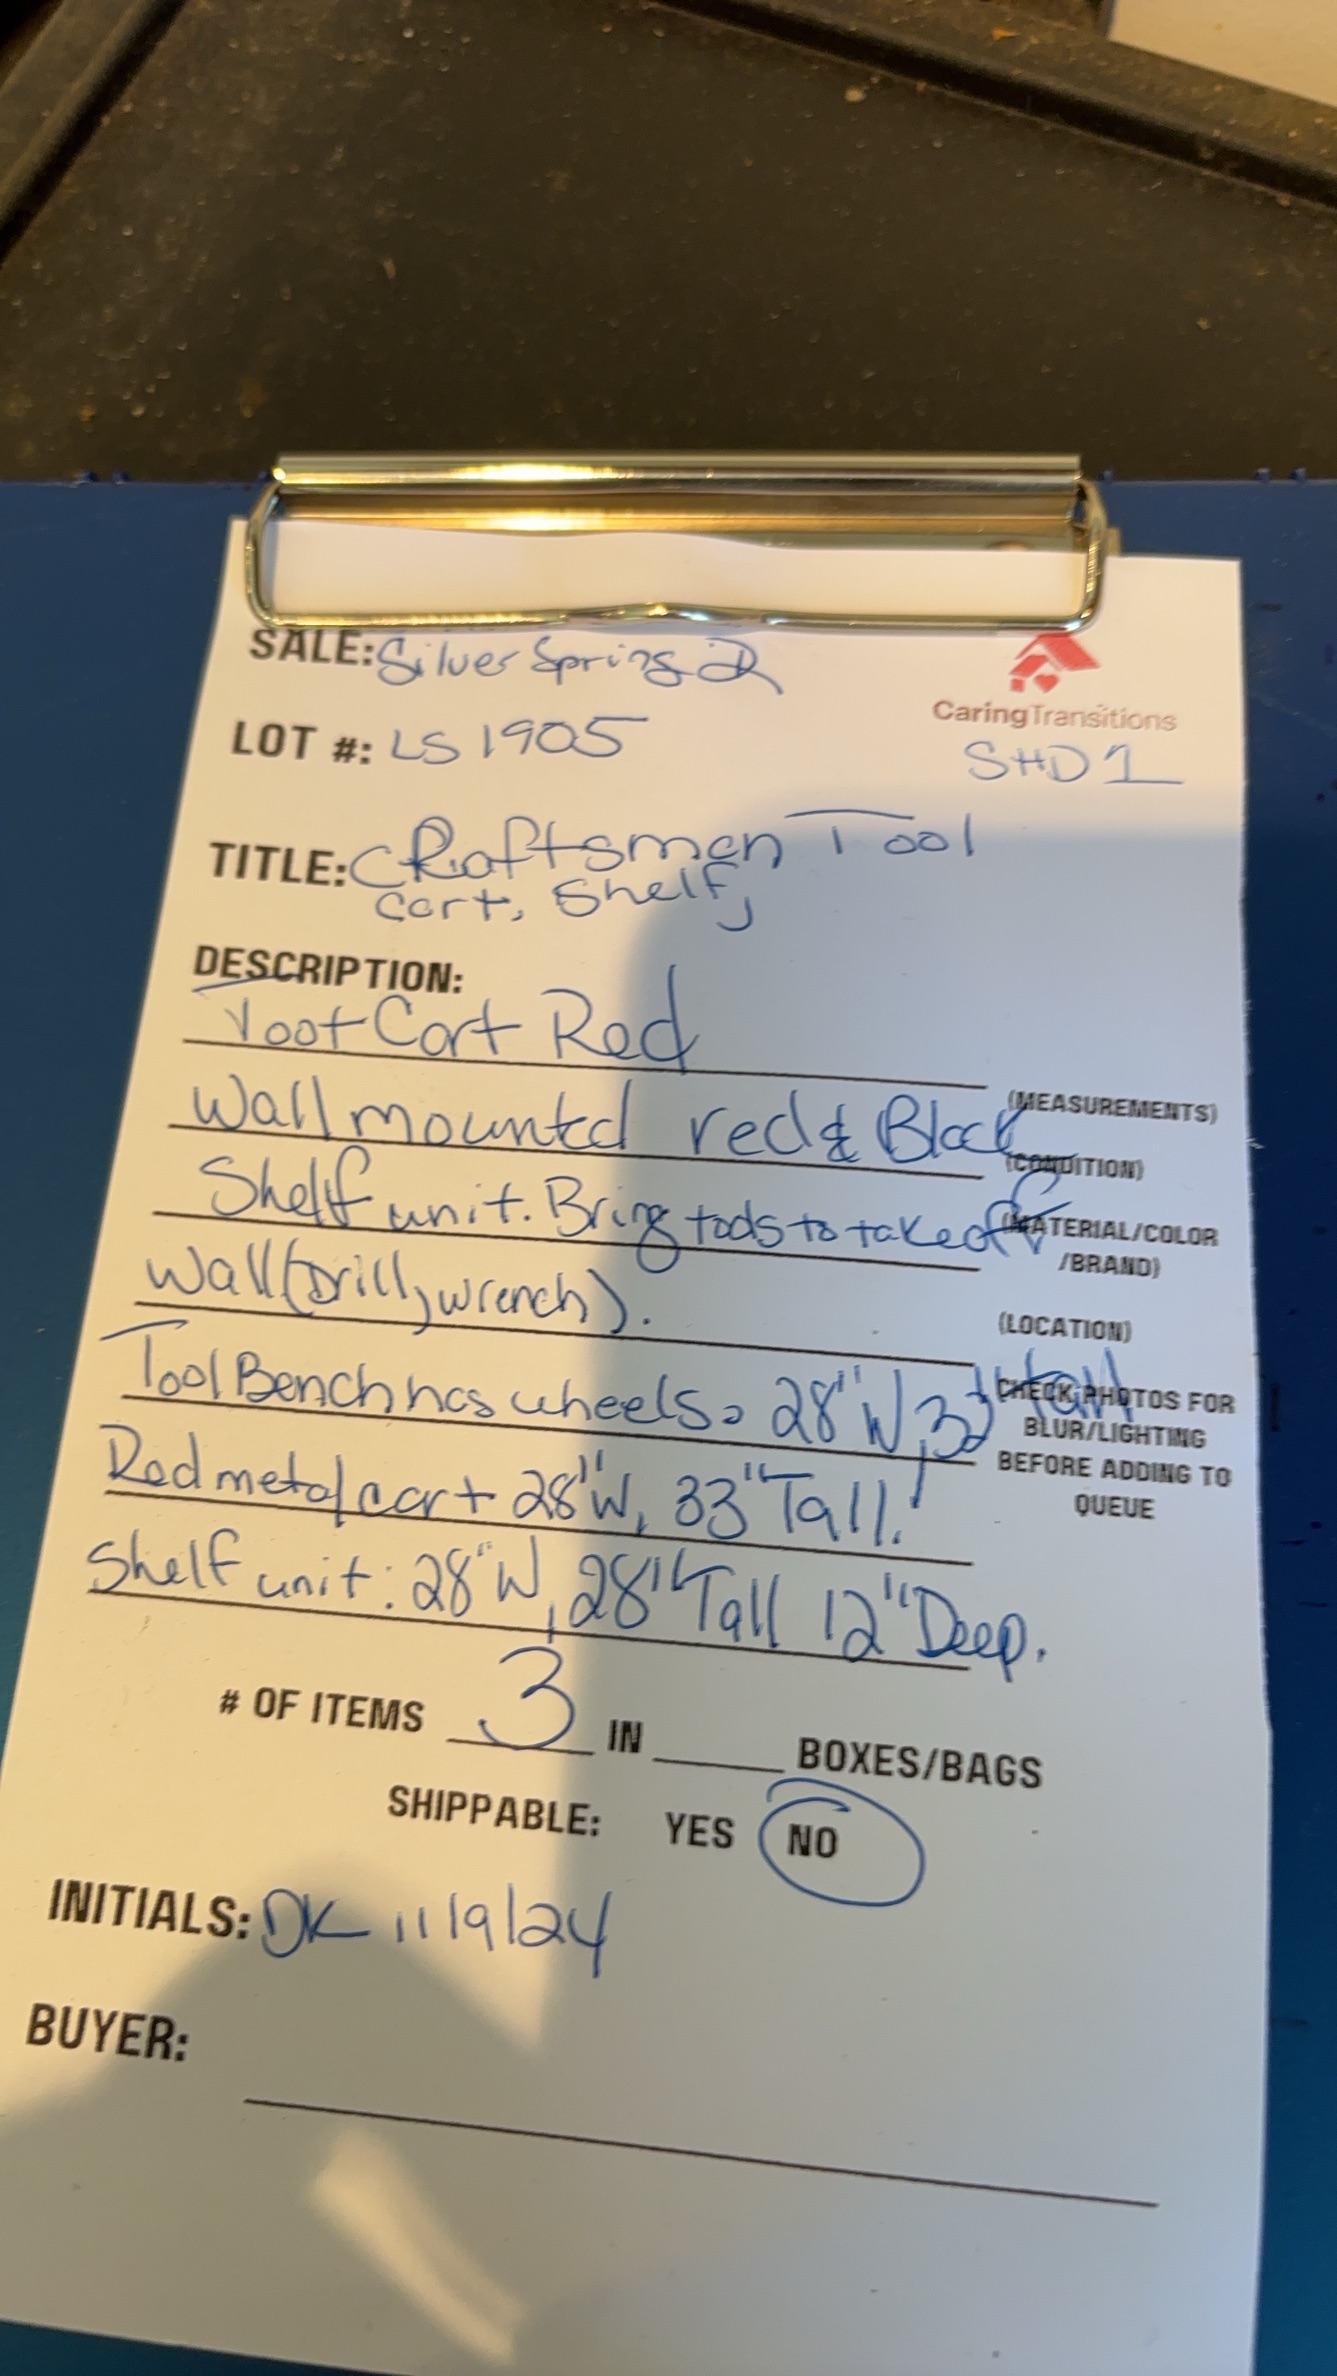 SALE: Silver Spring 2
CaringTransitions
LOT #: LS 1905
SHD1
TITLE: Craftsman Tool
Cart, Shelf,
DESCRIPTION:
Cart Red
(MEASUREMENTS)
Wall mounted red & Black
(CONDITION)
Shelf unit. Bring tools to take off
(MATERIAL/COLOR
/BRAND)
Wall (Drill, wrench).
(LOCATION)
Tool Bench has wheels. 28"W, Tall
CHECK PHOTOS FOR
BLUR/LIGHTING
BEFORE ADDING TO
QUEUE
Red metal cart 28"W, 33" Tall!
Shelf unit: 28"W, 28" Tall 12" Deep.
# OF ITEMS 3 IN ____ BOXES/BAGS
SHIPPABLE: YES NO
INITIALS: DK 11/9/24
BUYER: